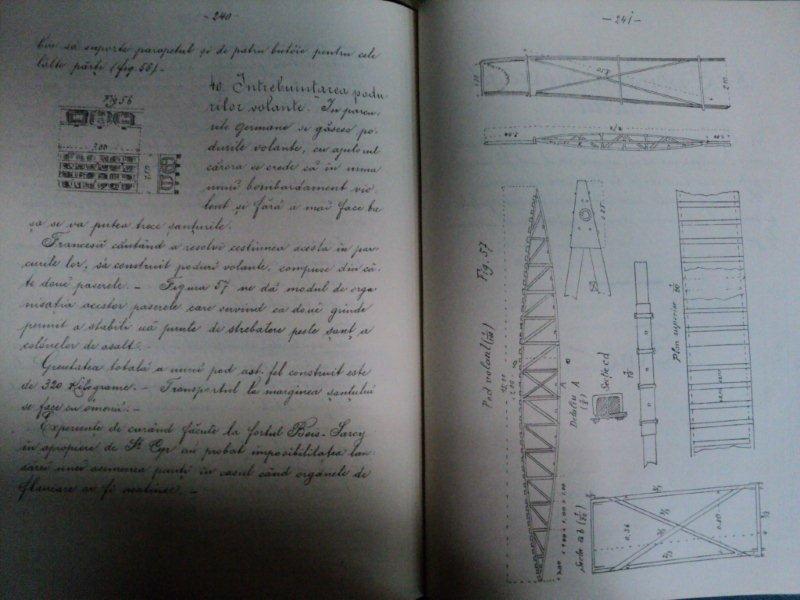 - 240 -
să suporte parapetul și de patru butoie pentru cele
l'alte părți (fig. 56).
Fig. 56
3.00
40. Întrebuințarea podu-
rilor volante. În parcu-
rile Germane se găsesc po-
durile volante, cu ajutorul
cărora se crede că în urma
unui bombardament vio-
lent și fără a mai face
să se va putea trece șanțurile.
Francesii căutând a resolvi cestiunea acesta în par-
curile lor, să construit poduri volante, compuse din câ-
te două paserele. - Figura 57 ne dă modul de orga-
nisația acestor paserele care servind ca două grinde
permit a stabili uă punte de strebatere peste șanț a
colónelor de asalt. -
Greutatea totală a unui pod ast-fel construit este
de 320 Kilograme. - Transportul la marginea șanțului
se face cu omenii. -
Experiențe de curând făcute la fortul Bois-
în apropiere de St Cyr au probat imposibilitatea lan-
sărei unei asemenea punți în casul când organele de
flancare ar fi neatinse. -
- 241 -
Fig. 57
Pod volant
Detaliu A
A
Plan superior
Secția ab
0.36
0.80